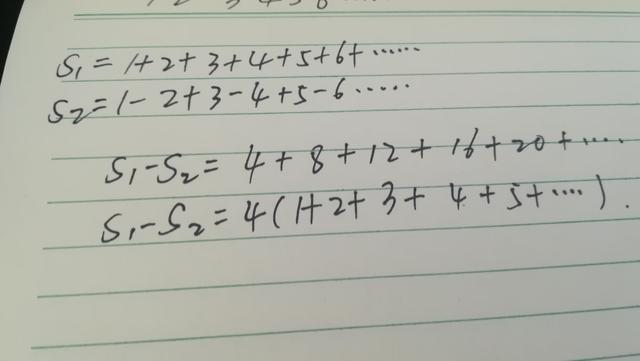 S₁ = 1+2+3+4+5+6+......
S₂ = 1-2+3-4+5-6.....
S₁-S₂ = 4+8+12+16+20+....
S₁-S₂ = 4(1+2+3+4+5+....).